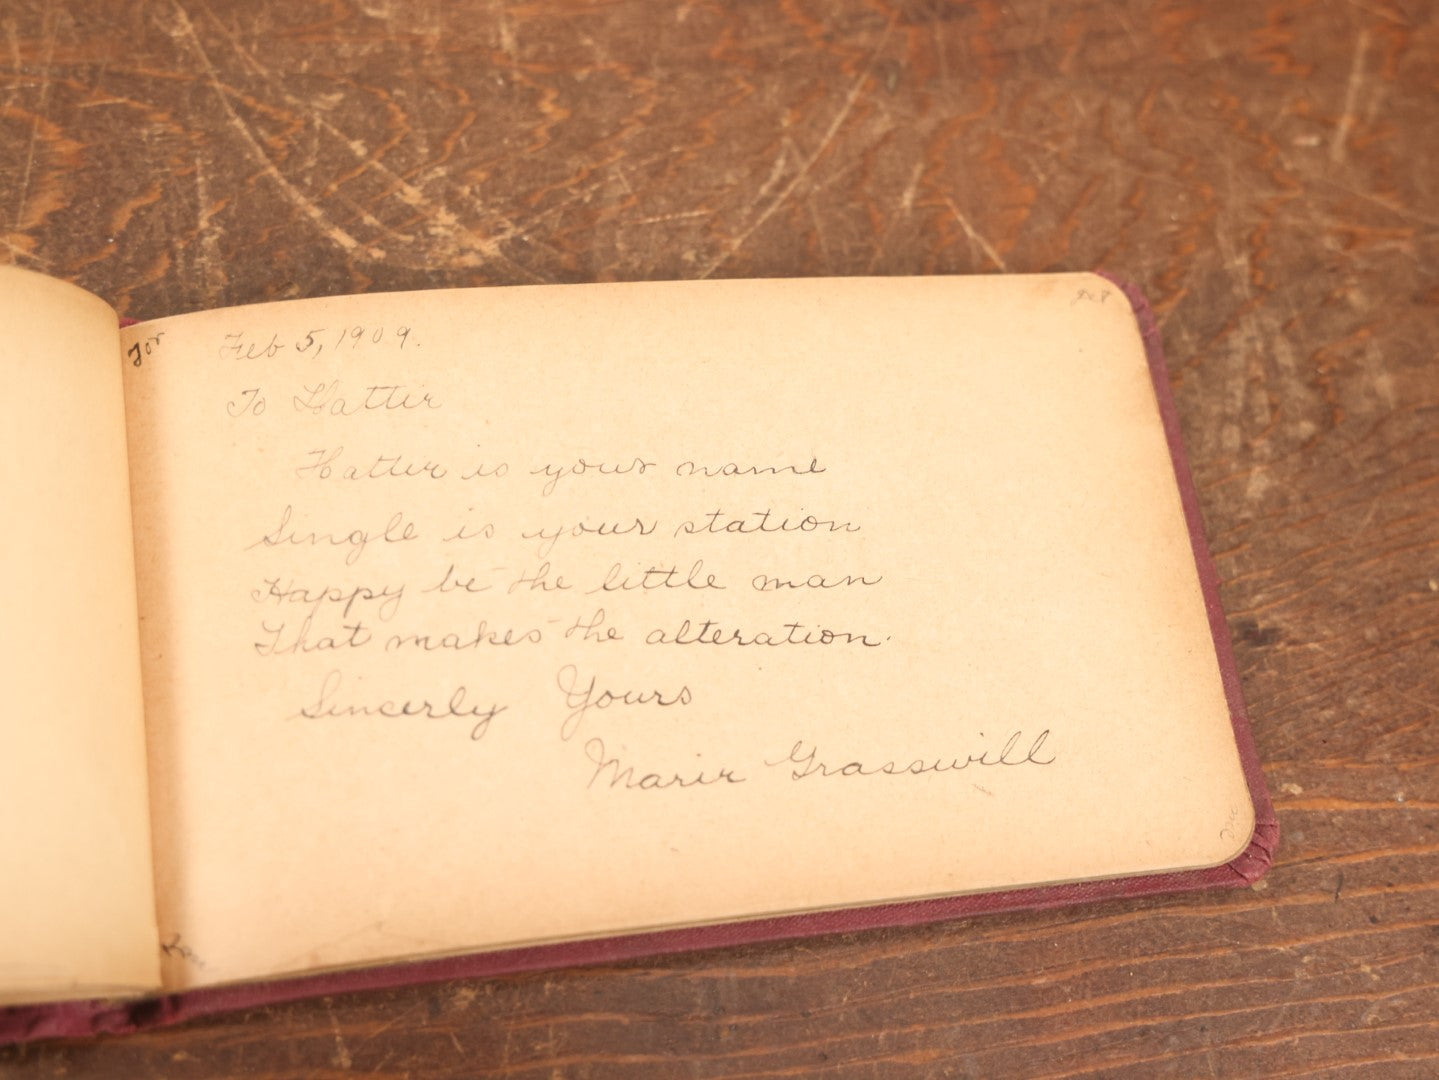 For
Feb 5, 1909.
get
To Hattie
Hattie is your name
Single is your station
Happy be the little man
That makes the alteration.
Sincerly Yours
Marie Grasswill